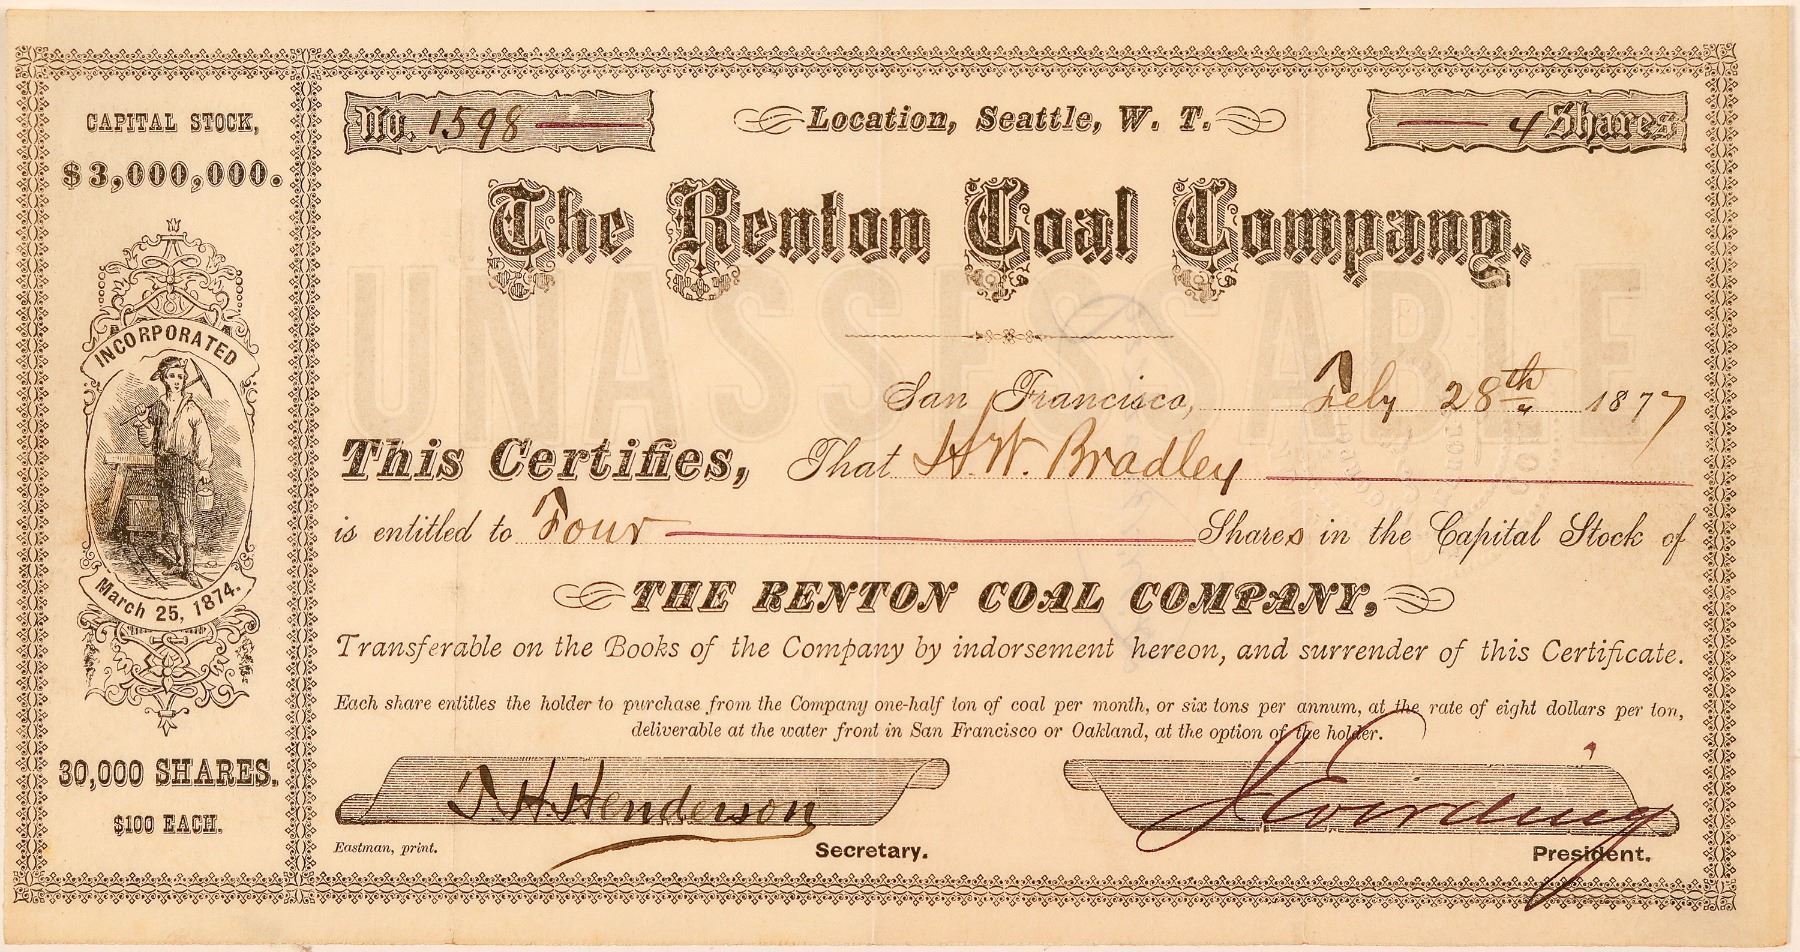 CAPITAL STOCK,
$3,000,000.
INCORPORATED
March 25, 1874.
30,000 SHARES.
$100 EACH.
No. 1598
Location, Seattle, W. T.
4 Shares
The Renton Coal Company.
UNASSESSABLE
San Francisco, Feby 28th 1877
This Certifies, That H. W. Bradley
is entitled to Four Shares in the Capital Stock of
THE RENTON COAL COMPANY,
Transferable on the Books of the Company by indorsement hereon, and surrender of this Certificate.
Each share entitles the holder to purchase from the Company one-half ton of coal per month, or six tons per annum, at the rate of eight dollars per ton,
deliverable at the water front in San Francisco or Oakland, at the option of the holder.
T. H. Henderson
Eastman, print.
Secretary.
President.